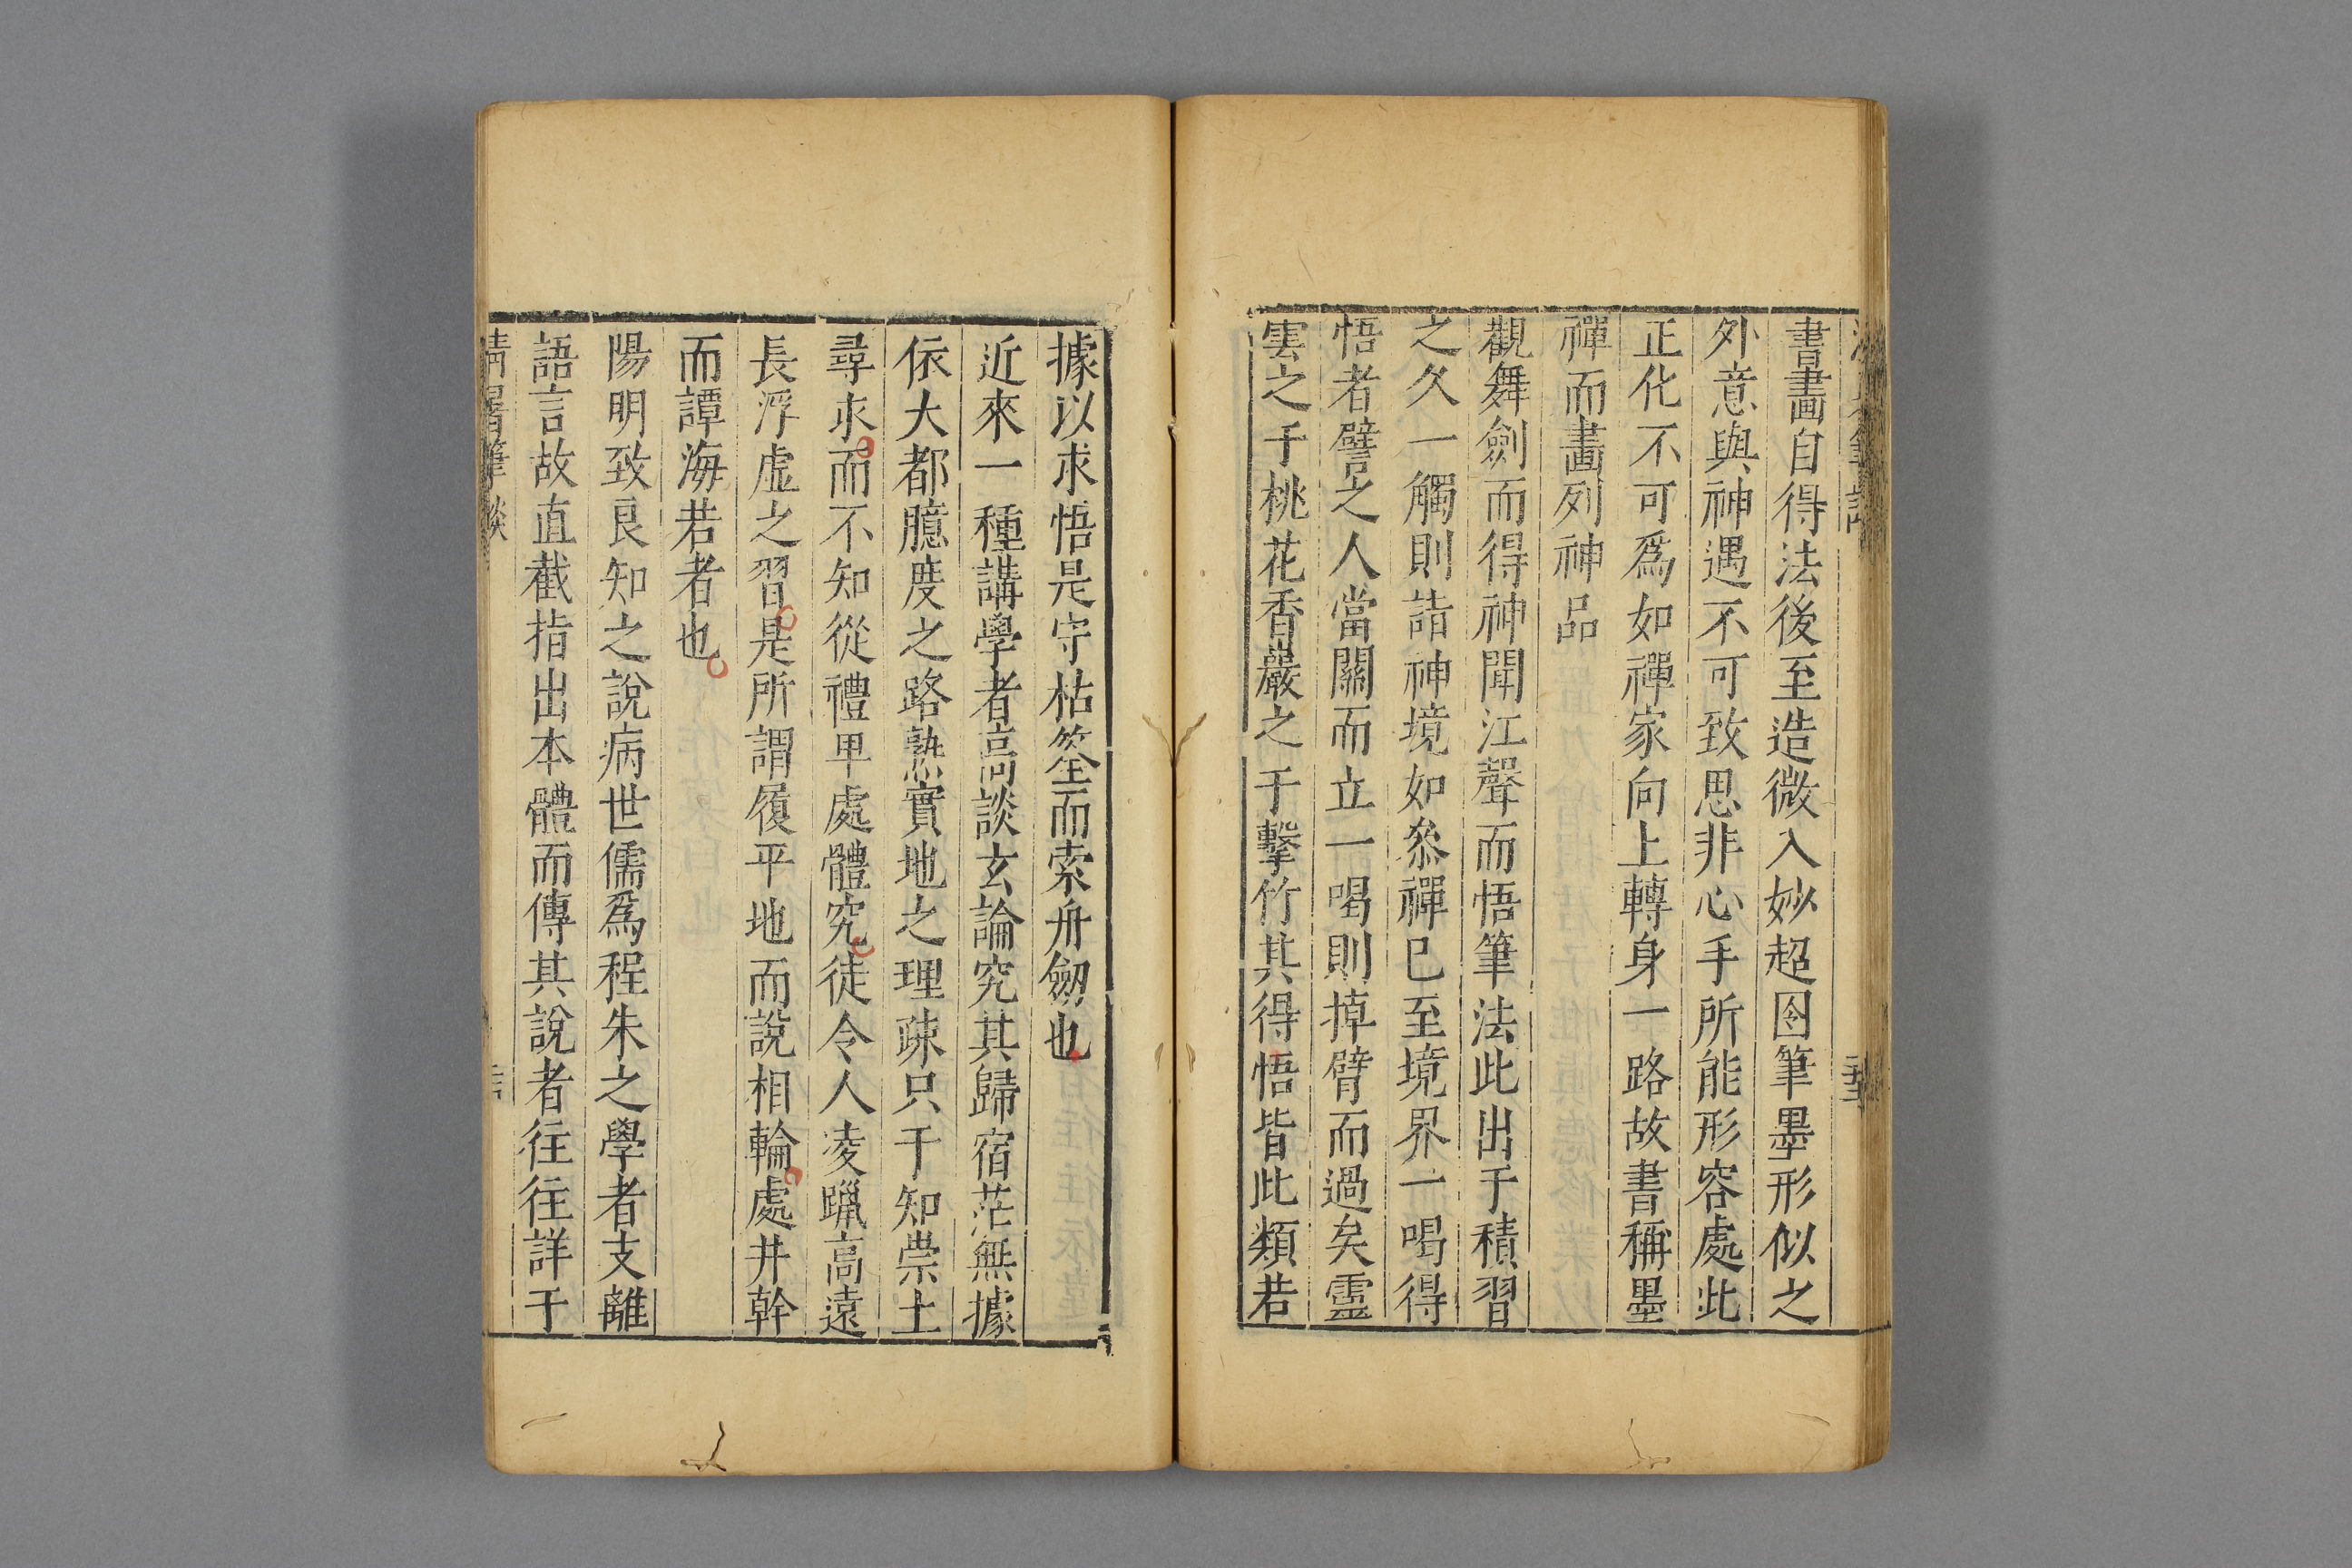 書畫自得法後至造微入妙超因筆墨形似之
外意與神遇不可致思非心手所能形容處此
正化不可爲如禪家向上轉身一路故書稱墨
禪而畫列神品
觀舞劍而得神聞江聲而悟筆法此出于積習
之久一觸則詣神境如叅禪已至境界一喝得
悟者譬之人當關而立一喝則掉臂而過矣靈
雲之于桃花香嚴之于擊竹其得悟皆此類若
據以求悟是守枯筌而索舟劒也
近來一種講學者高談玄論究其歸宿茫無據
依大都臆度之路熟實地之理疎只于知崇上
尋求而不知從禮卑處體究徒令人凌躐高遠
長浮虛之習是所謂履平地而說相輪處井幹
而譚海若者也
陽明致良知之說病世儒爲程朱之學者支離
語言故直截指出本體而傳其說者往往詳于
清暑筆談